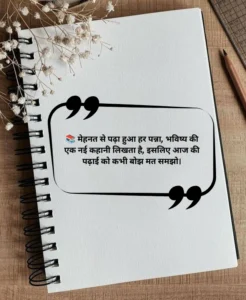 📚 मेहनत से पढ़ा हुआ हर पन्ना, भविष्य की
एक नई कहानी लिखता है, इसलिए आज की
पढ़ाई को कभी बोझ मत समझो।